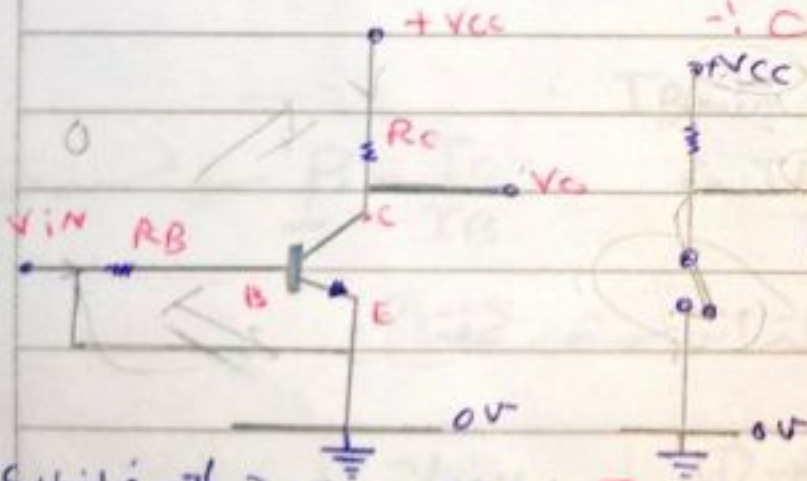 + VCC
+VCC
Rc
Vo
C
ViN
RB
B
E
0V
0V